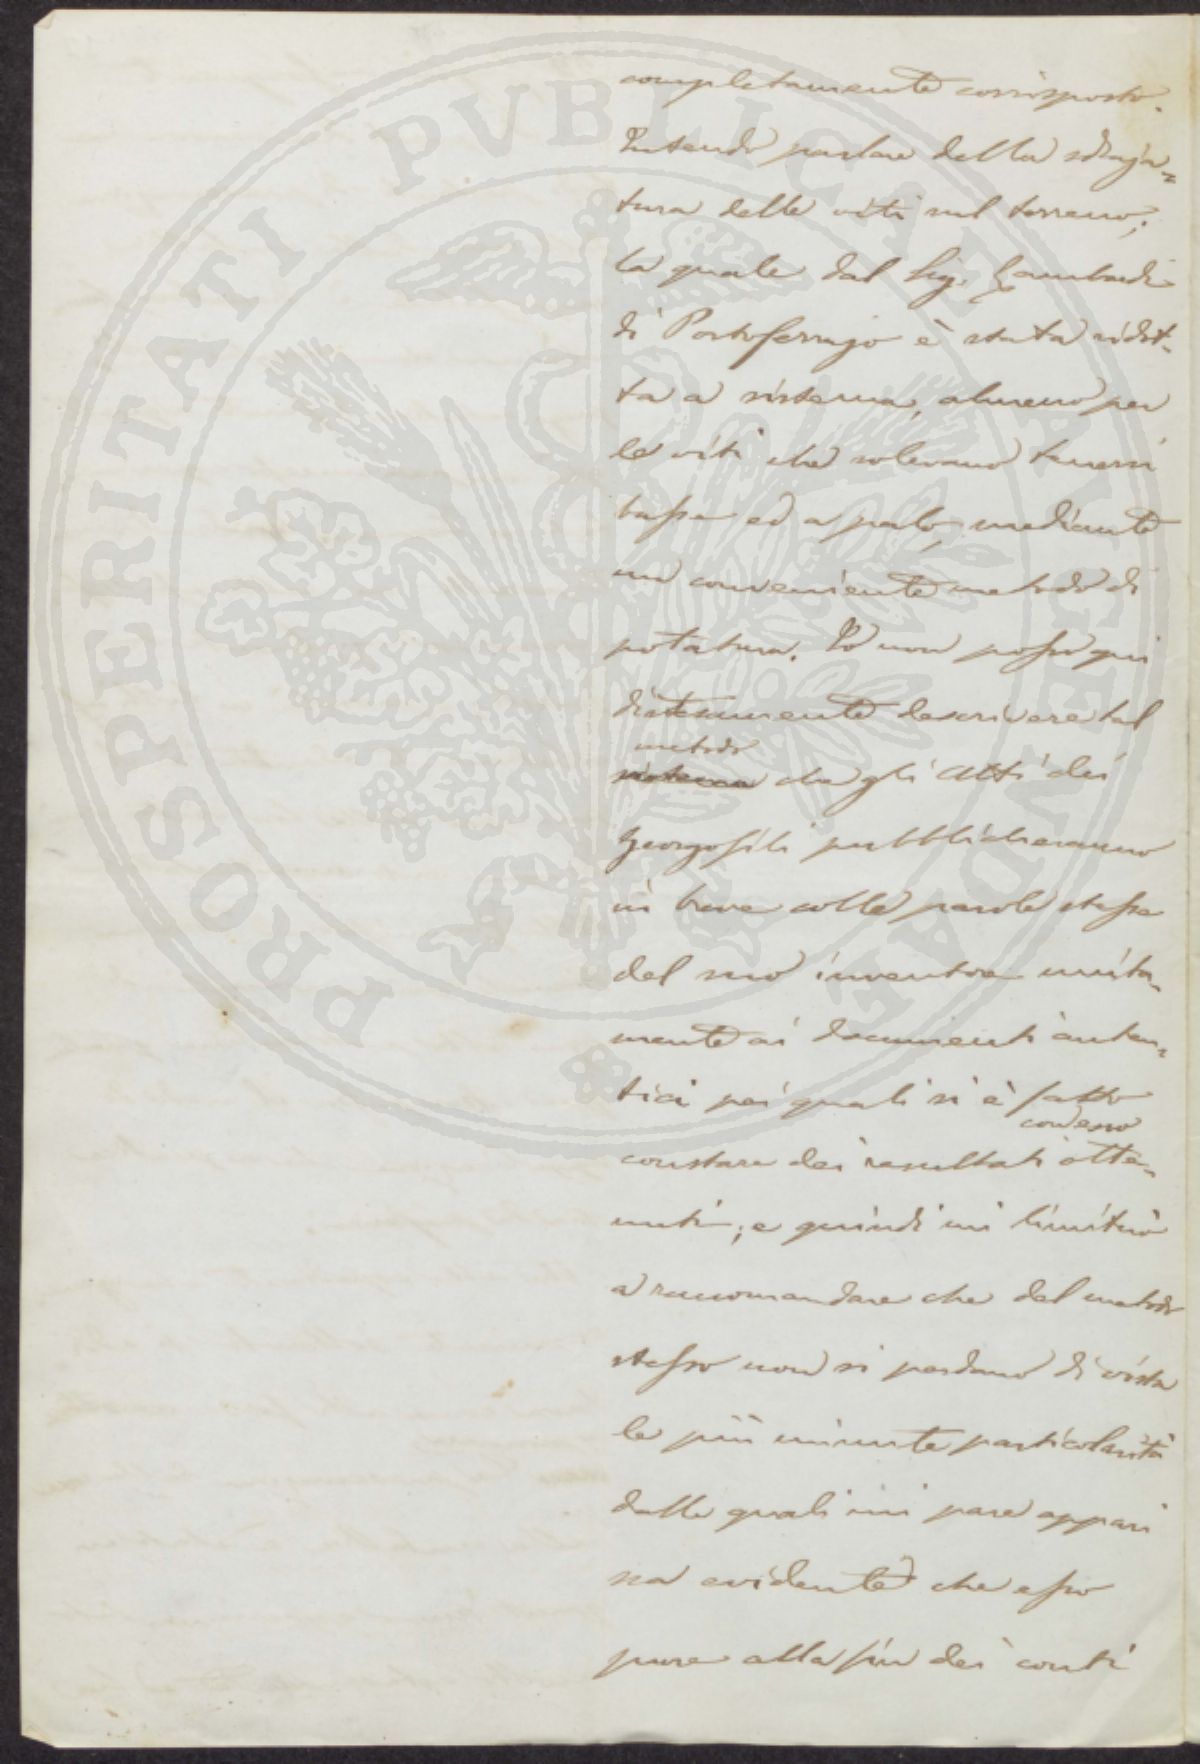 completamente corrisposto.
Intendo parlare della sdraja-
tura delle viti sul terreno;
la quale dal Sig. Lambardi
di Portoferrajo è stata ridot-
ta a sistema, almeno per
le viti che solevano tenersi
basse ed a palo, mediante
un conveniente metodo di
potatura. Io non posso qui
distesamente descrivere tal
metodo
sistema che gli Atti dei
Georgofili pubblicheranno
in breve colle parole stesse
del suo inventore unita-
mente ai documenti auten-
tici pei quali si è fatto
con esso
constare dei resultati otte-
nuti; e quindi mi limiterò
a raccomandare che del metodo
stesso non si perdano di vista
le più minute particolarità
dalle quali mi pare appari
sca evidente che esso
pure alla fin dei conti
PROSPERITATI PVBLICAE AVGENDAE